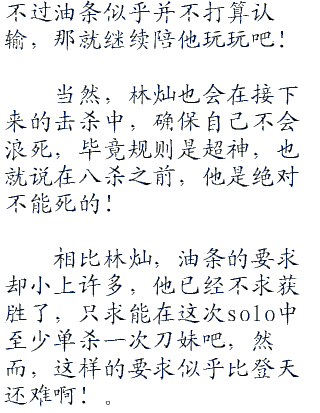 不过油条似乎并不打算认
输，那就继续陪他玩玩吧！
当然，林灿也会在接下
来的击杀中，确保自己不会
浪死，毕竟规则是超神，也
就说在八杀之前，他是绝对
不能死的！
相比林灿，油条的要求
却小上许多，他已经不求获
胜了，只求能在这次solo中
至少单杀一次刀妹吧，然
而，这样的要求似乎比登天
还难啊！。